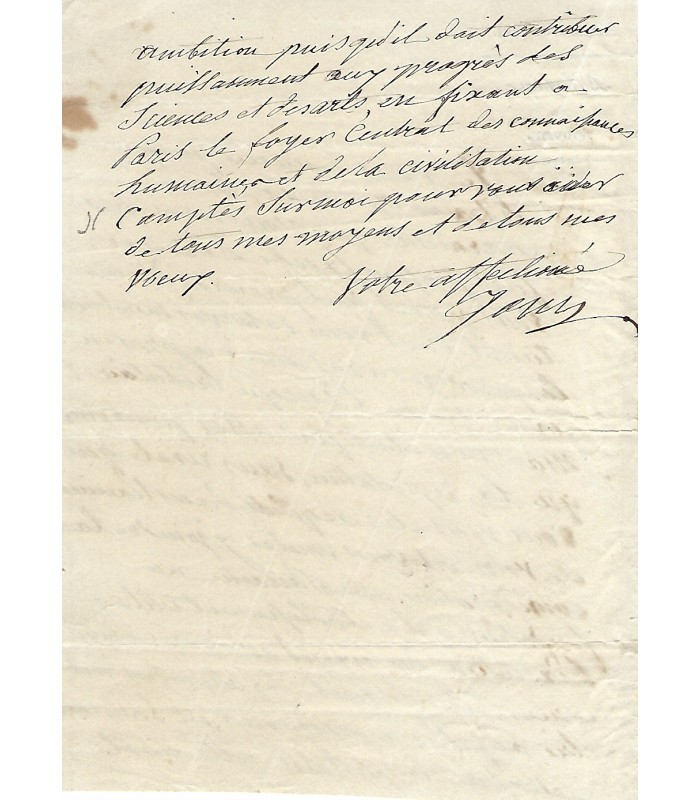 ambition puisqu'il doit contribuer
puissamment aux progrès des
Sciences et des arts, en fixant a
Paris le foyer Central des connaissances
humaines et de la civilisation
Comptès Sur moi pour vous aider
de tous mes moyens et de tous mes
Voeux.
Votre affectioné
Jouy